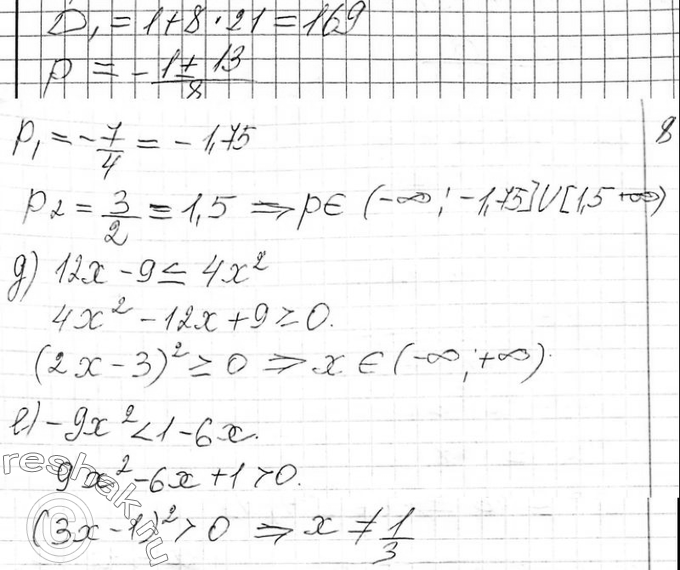 D₁ = 1+8·21 = 169
p = -(1±13)/8
p₁ = -7/4 = -1,75
8
p₂ = 3/2 = 1,5 ⇒ p∈(-∞; -1,75]∪[1,5 +∞)
д) 12x - 9 ≤ 4x²
4x² - 12x + 9 ≥ 0.
(2x - 3)² ≥ 0 ⇒ x ∈ (-∞; +∞).
е) -9x² < 1 - 6x.
9x² - 6x + 1 > 0.
(3x - 1)² > 0 ⇒ x ≠ 1/3
reshak.ru